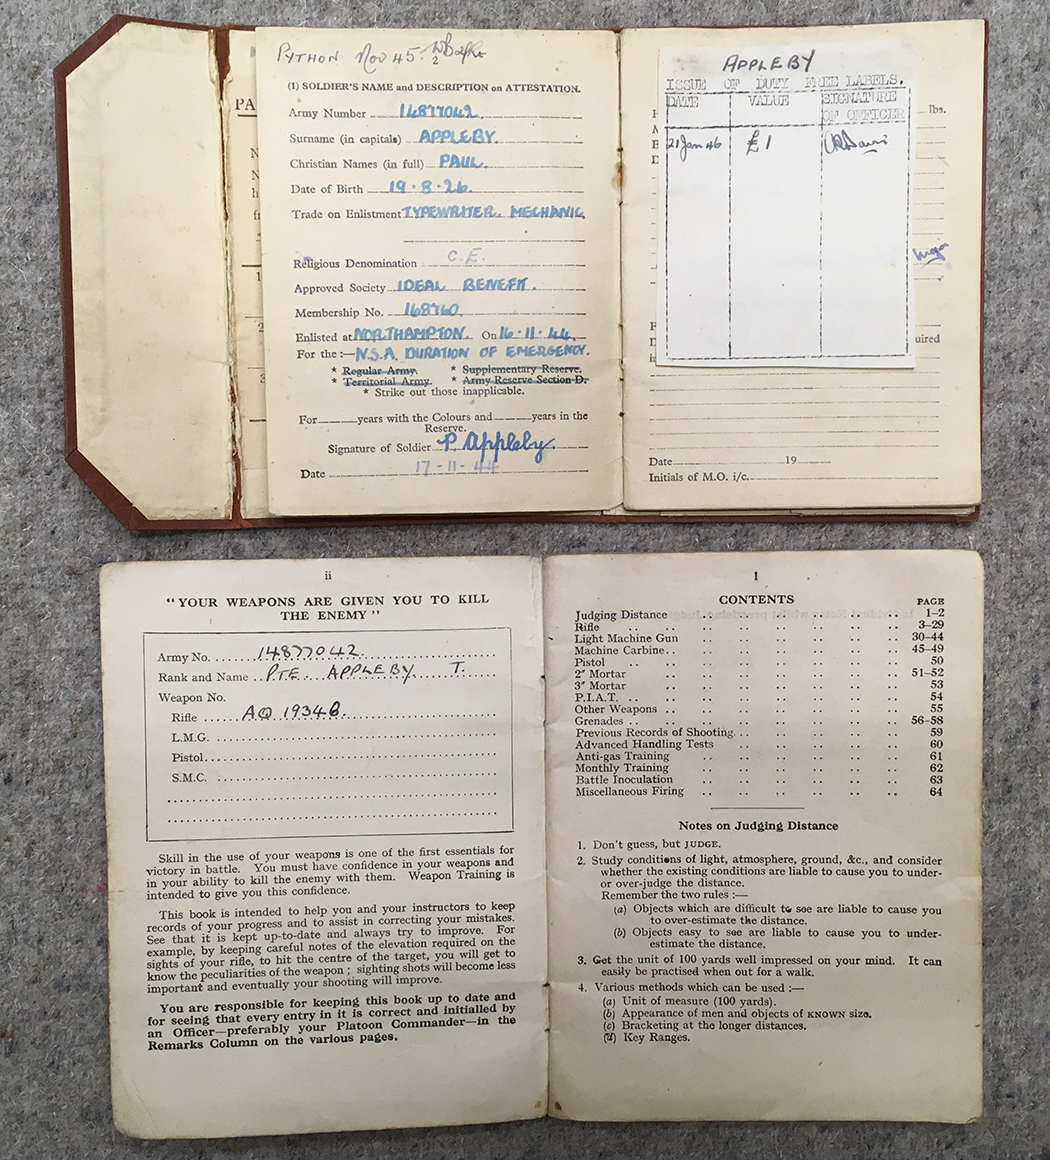 PYTHON NOV 45.
(1) SOLDIER'S NAME and DESCRIPTION on ATTESTATION.
Army Number 14877042.
Surname (in capitals) APPLEBY.
Christian Names (in full) PAUL.
Date of Birth 19·8·26.
Trade on Enlistment TYPEWRITER MECHANIC
Religious Denomination C.E.
Approved Society IDEAL BENEFIT.
Membership No. 168760.
Enlisted at NORTHAMPTON. On 16·11·44.
For the :— N.S.A. DURATION OF EMERGENCY.
* Regular Army. * Supplementary Reserve.
* Territorial Army. * Army Reserve Section D.
* Strike out those inapplicable.
For years with the Colours and years in the
Reserve.
Signature of Soldier P. Appleby.
Date 17-11-44
PA
APPLEBY
ISSUE OF DUTY FREE LABELS.
DATE VALUE SIGNATURE
OF OFFICER
21 Jan 46 £1
lbs.
uired
Date 19
Initials of M.O. i/c.
ii
"YOUR WEAPONS ARE GIVEN YOU TO KILL
THE ENEMY"
Army No. 14877042.
Rank and Name PTE. APPLEBY T.
Weapon No.
Rifle AQ 1934B.
L.M.G.
Pistol
S.M.C.
Skill in the use of your weapons is one of the first essentials for
victory in battle. You must have confidence in your weapons and
in your ability to kill the enemy with them. Weapon Training is
intended to give you this confidence.
This book is intended to help you and your instructors to keep
records of your progress and to assist in correcting your mistakes.
See that it is kept up-to-date and always try to improve. For
example, by keeping careful notes of the elevation required on the
sights of your rifle, to hit the centre of the target, you will get to
know the peculiarities of the weapon ; sighting shots will become less
important and eventually your shooting will improve.
You are responsible for keeping this book up to date and
for seeing that every entry in it is correct and initialled by
an Officer—preferably your Platoon Commander—in the
Remarks Column on the various pages.
1
CONTENTS
PAGE
Judging Distance 1–2
Rifle 3–29
Light Machine Gun 30–44
Machine Carbine 45–49
Pistol 50
2″ Mortar 51–52
3″ Mortar 53
P.I.A.T. 54
Other Weapons 55
Grenades 56–58
Previous Records of Shooting 59
Advanced Handling Tests 60
Anti-gas Training 61
Monthly Training 62
Battle Inoculation 63
Miscellaneous Firing 64
Notes on Judging Distance
1. Don't guess, but JUDGE.
2. Study conditions of light, atmosphere, ground, &c., and consider
whether the existing conditions are liable to cause you to under-
or over-judge the distance.
Remember the two rules :—
(a) Objects which are difficult to see are liable to cause you
to over-estimate the distance.
(b) Objects easy to see are liable to cause you to under-
estimate the distance.
3. Get the unit of 100 yards well impressed on your mind. It can
easily be practised when out for a walk.
4. Various methods which can be used :—
(a) Unit of measure (100 yards).
(b) Appearance of men and objects of KNOWN size.
(c) Bracketing at the longer distances.
(d) Key Ranges.